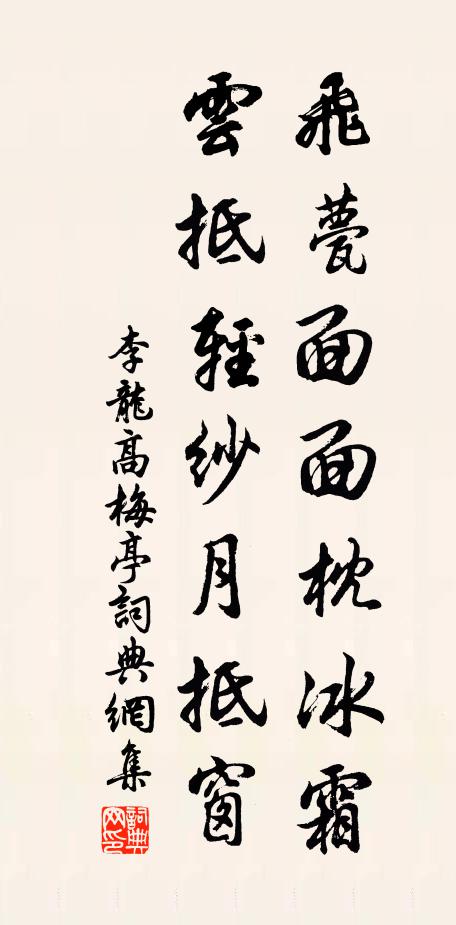 飛甍面面枕冰霜
雲抵輕紗月抵窗
李龍高梅亭詞典網集
詞典網印